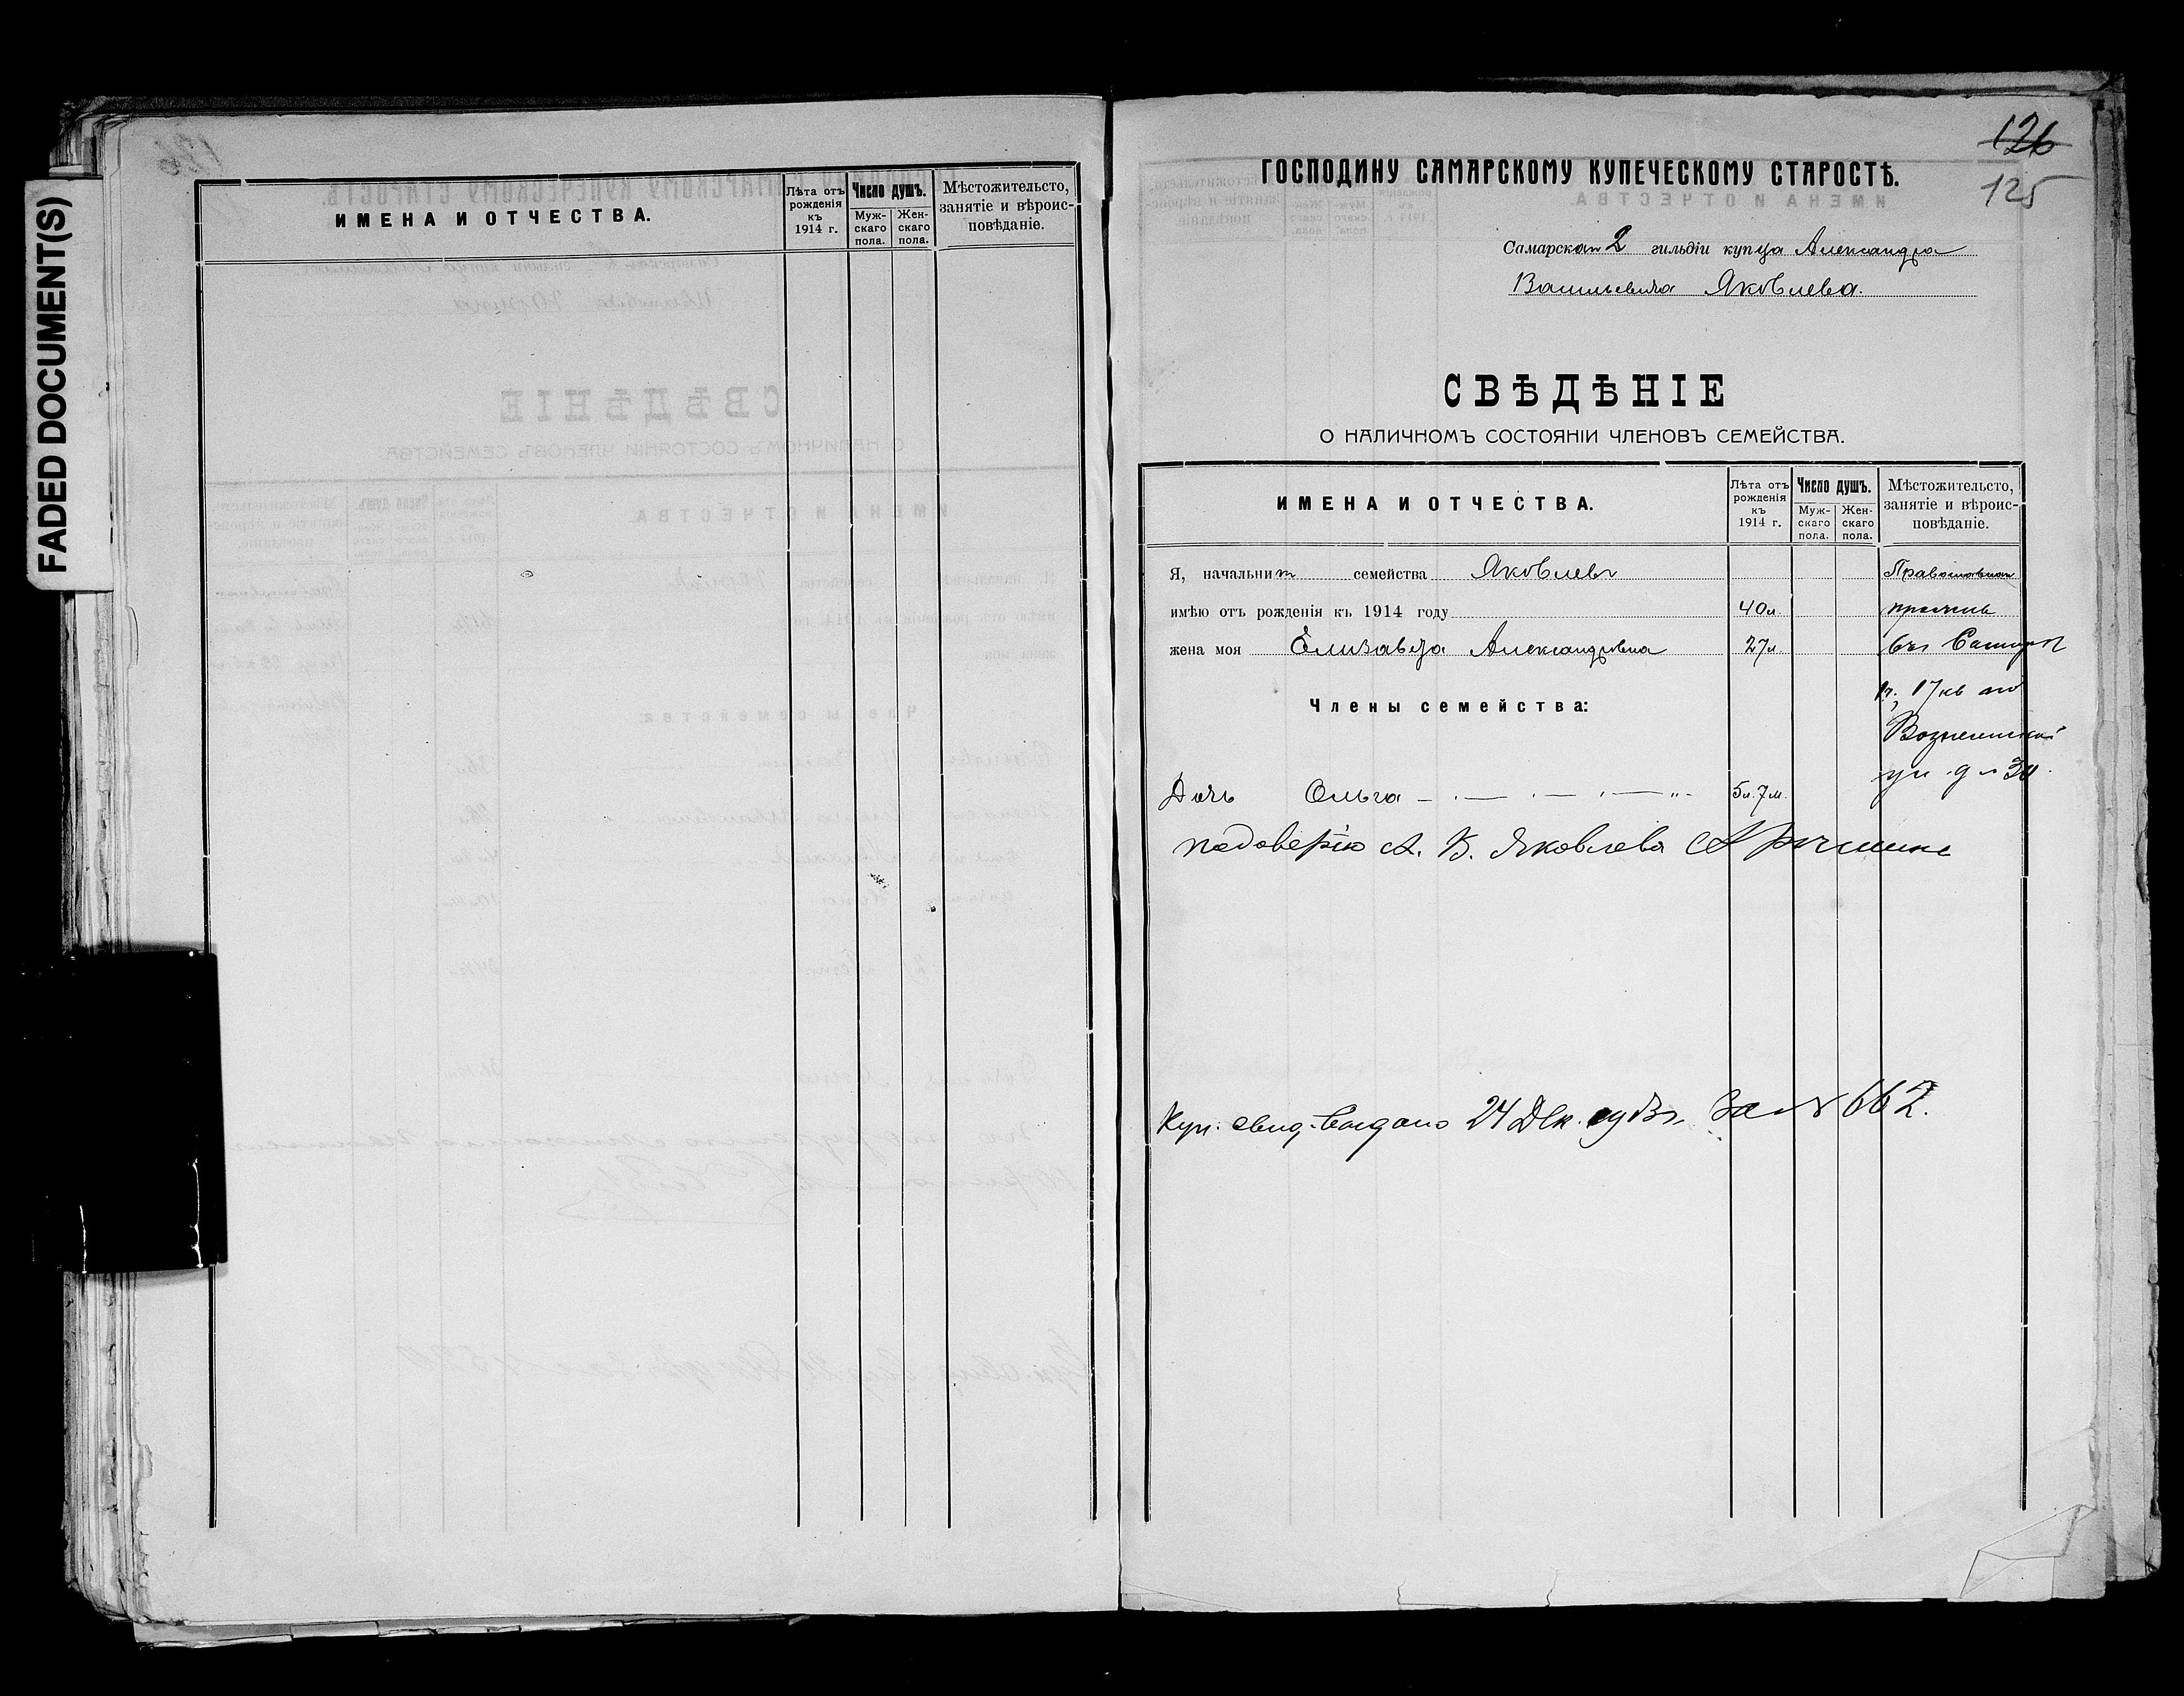 FADED DOCUMENT(S)
ИМЕНА И ОТЧЕСТВА.
Лѣта отъ рожденія къ 1914 г.
Число душъ.
Муж-скаго пола.
Жен-скаго пола.
Мѣстожительсто, занятіе и вѣроис-повѣданіе.
126
125
ГОСПОДИНУ САМАРСКОМУ КУПЕЧЕСКОМУ СТАРОСТѢ.
Самарскаго 2 гильдіи купца Александра
Васильевича Яковлева.
СВѢДѢНІЕ
О НАЛИЧНОМЪ СОСТОЯНІИ ЧЛЕНОВЪ СЕМЕЙСТВА.
ИМЕНА И ОТЧЕСТВА.
Лѣта отъ рожденія къ 1914 г.
Число душъ.
Муж-скаго пола.
Жен-скаго пола.
Мѣстожительсто, занятіе и вѣроис-повѣданіе.
Я, начальникъ семейства Яковлевъ Православная
имѣю отъ рожденія къ 1914 году 40 л.
жена моя Елизавета Александровна 27 л. въ
17 кв по
Члены семейства:
Вознесенской
ул. д № 30.
Дочь Ольга 5 л. 7 м.
По доверію А. В. Яковлева
Куп. свид. выдано 24 Дек. 1913 г. за № 662.